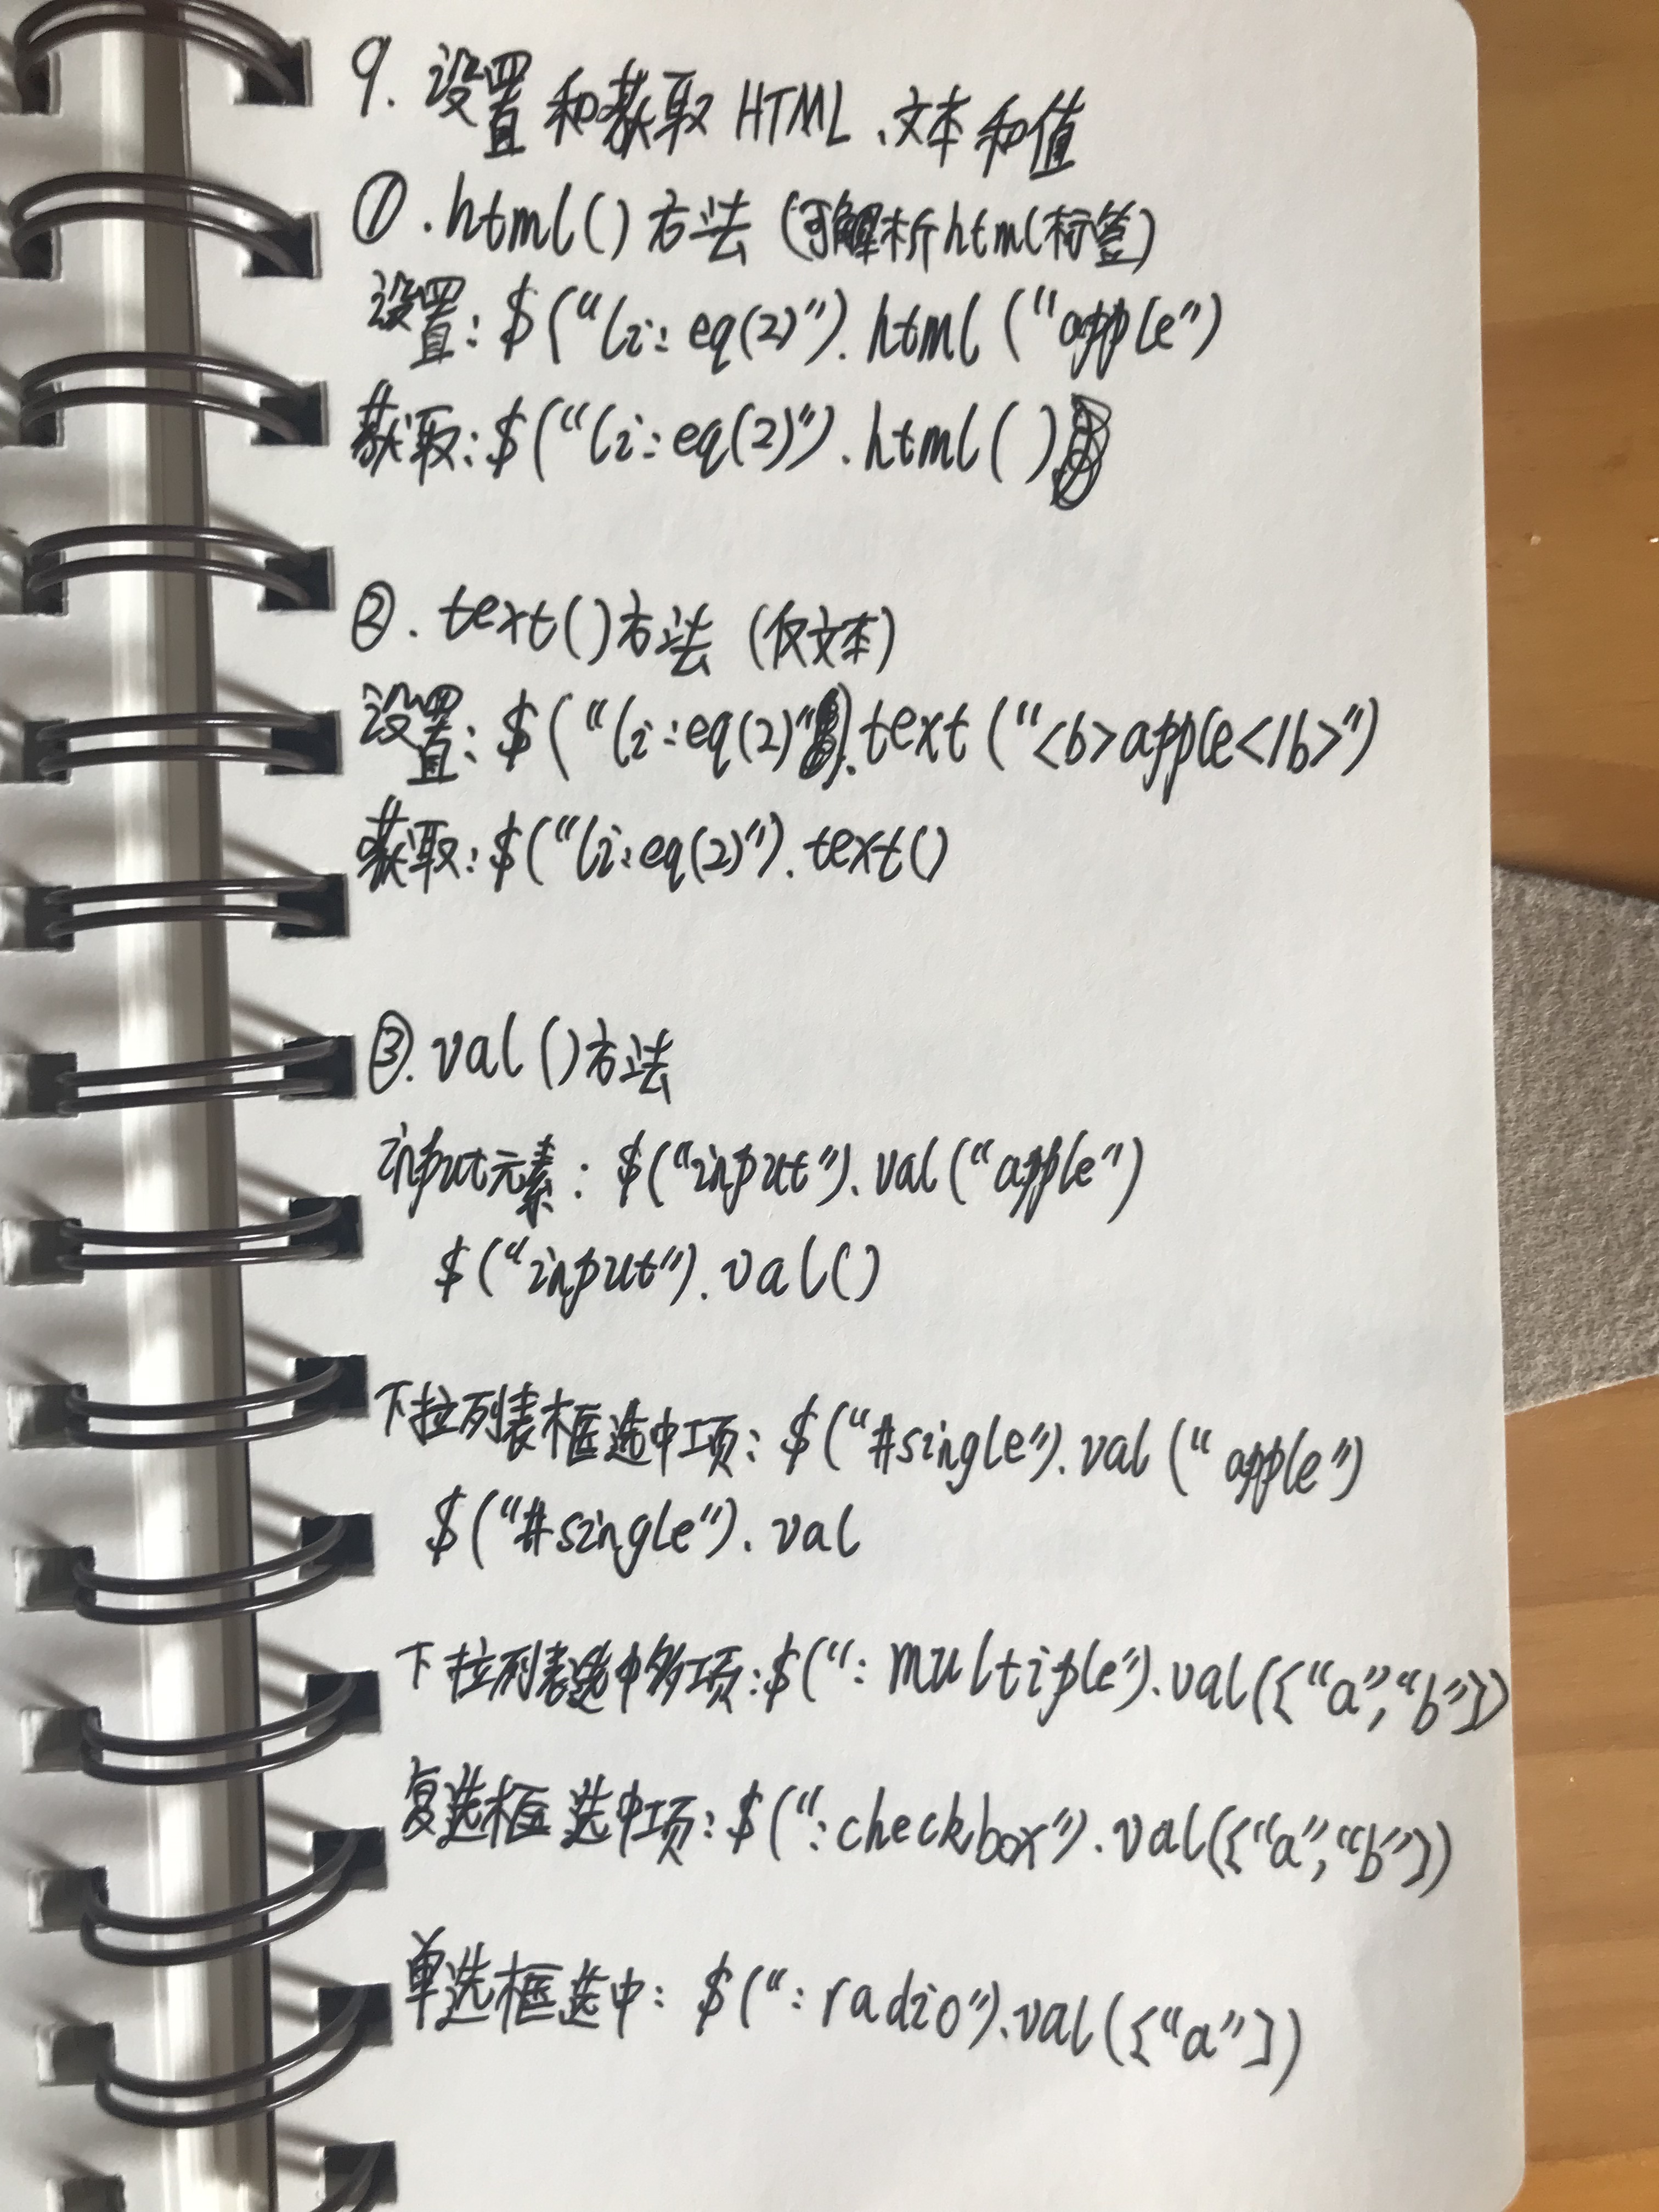 9. 设置和获取 HTML、文本和值
①.html()方法(可解析html标签)
设置:$("li:eq(2)").html("apple")
获取:$("li:eq(2)").html()
②.text()方法(仅文本)
设置:$("li:eq(2)").text("<b>apple</b>")
获取:$("li:eq(2)").text()
③.val()方法
input元素:$("input").val("apple")
$("input").val()
下拉列表框选中项:$("#single").val("apple")
$("#single").val
下拉列表选中多项:$(":multiple").val(["a","b"])
复选框选中项:$(":checkbox").val(["a","b"])
单选框选中:$(":radio").val(["a"])